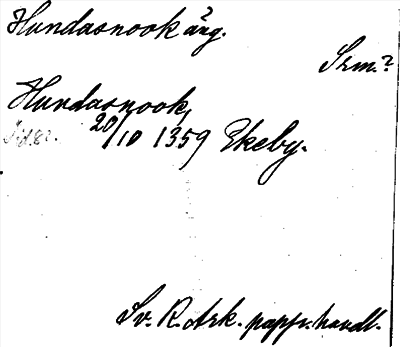 Hundasnook äng.
Srm.?
Hundasnook,
20/10 1359 Ekeby.
Sv. R. Ark. pappr. handl.